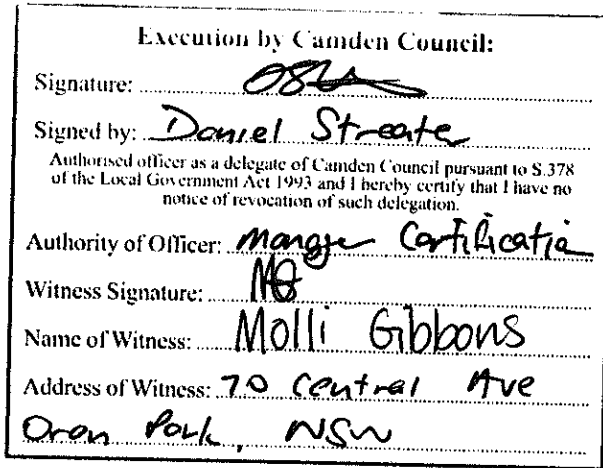 Execution by Camden Council:
Signature:
Signed by: Daniel Streater
Authorised officer as a delegate of Camden Council pursuant to S.378
of the Local Government Act 1993 and I hereby certify that I have no
notice of revocation of such delegation.
Authority of Officer: Manager Certification
Witness Signature: MG
Name of Witness: Molli Gibbons
Address of Witness: 70 Central Ave
Oran Park, NSW